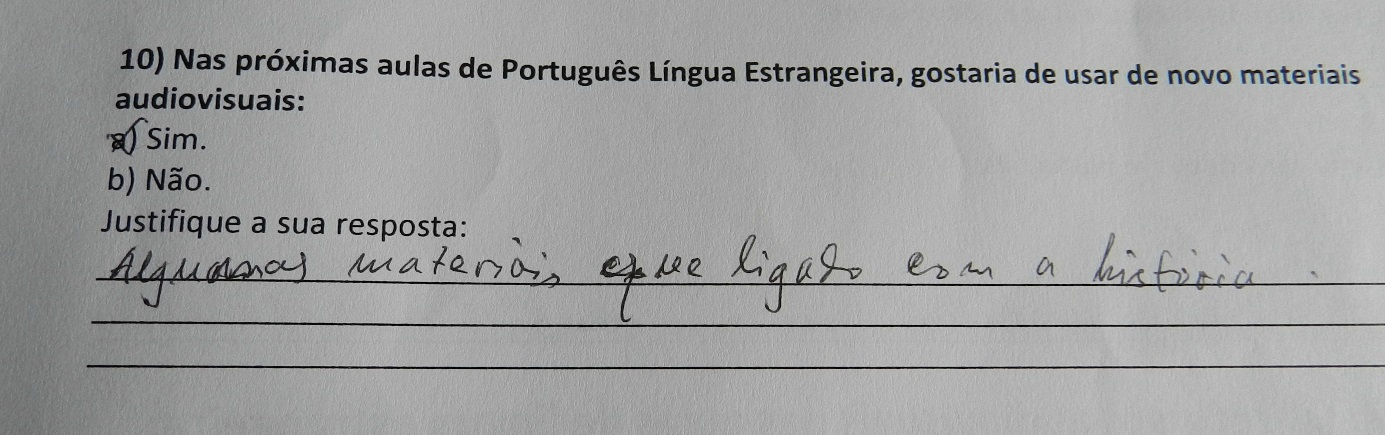 10) Nas próximas aulas de Português Língua Estrangeira, gostaria de usar de novo materiais
audiovisuais:
a) Sim.
b) Não.
Justifique a sua resposta:
materiàis que ligado com a história.